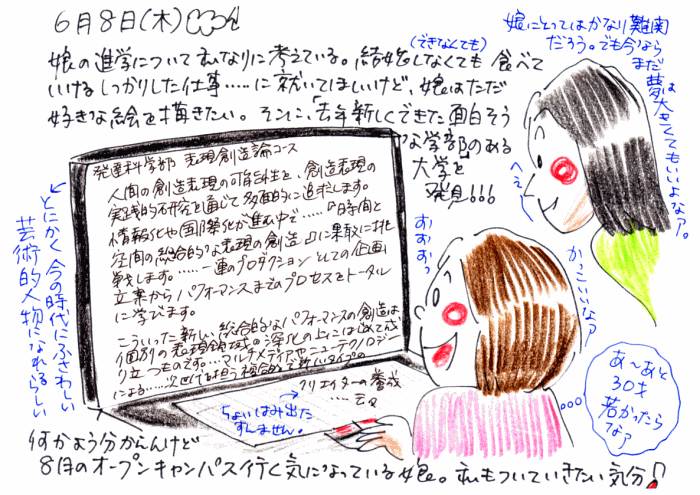 6月8日(木)
娘の進学について私なりに考えている。結婚しなくても(できなくても)食べて
いけるしっかりした仕事……に就いてほしいけど、娘はただ
好きな絵を描きたい。そこに、「去年新しくできた面白そう
な学部」のある
大学を
発見!!!
娘にとってはかなり難関
だろう。でも今なら
まだ
夢は
大きくてもいいよな?
へぇ〜
おおおっ
かっこいいなア
あ〜あと
30才
若かったら
なァ
発達科学部 表現創造論コース
人間の創造表現の可能性を、創造表現の
実践的研究を通じて多面的に追求します。
情報化や国際化が進む中で……『時間と
空間の総合的な表現の創造』に果敢に挑
戦します。……一連のプロダクションとしての企画
立案からパフォーマンスまでのプロセスをトータル
に学びます。
こういった新しい総合的なパフォーマンスの創造は、
個別の表現領域の深化の上にはじめて成
り立つものです。…マルチメディアやニューテクノロジー
による……次世代を担う複合的で新しいタイプの
クリエイターの養成
……云々
ちょいはみ出た
すんません。
とにかく今の時代にふさわしい
芸術的人物になれるらしい
何かよう分からんけど
8月のオープンキャンパス行く気になっている娘。私もついていきたい気分♪